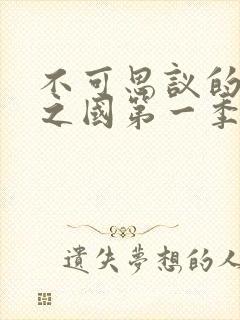 不可思议的
之國第一季
遺失夢想的人